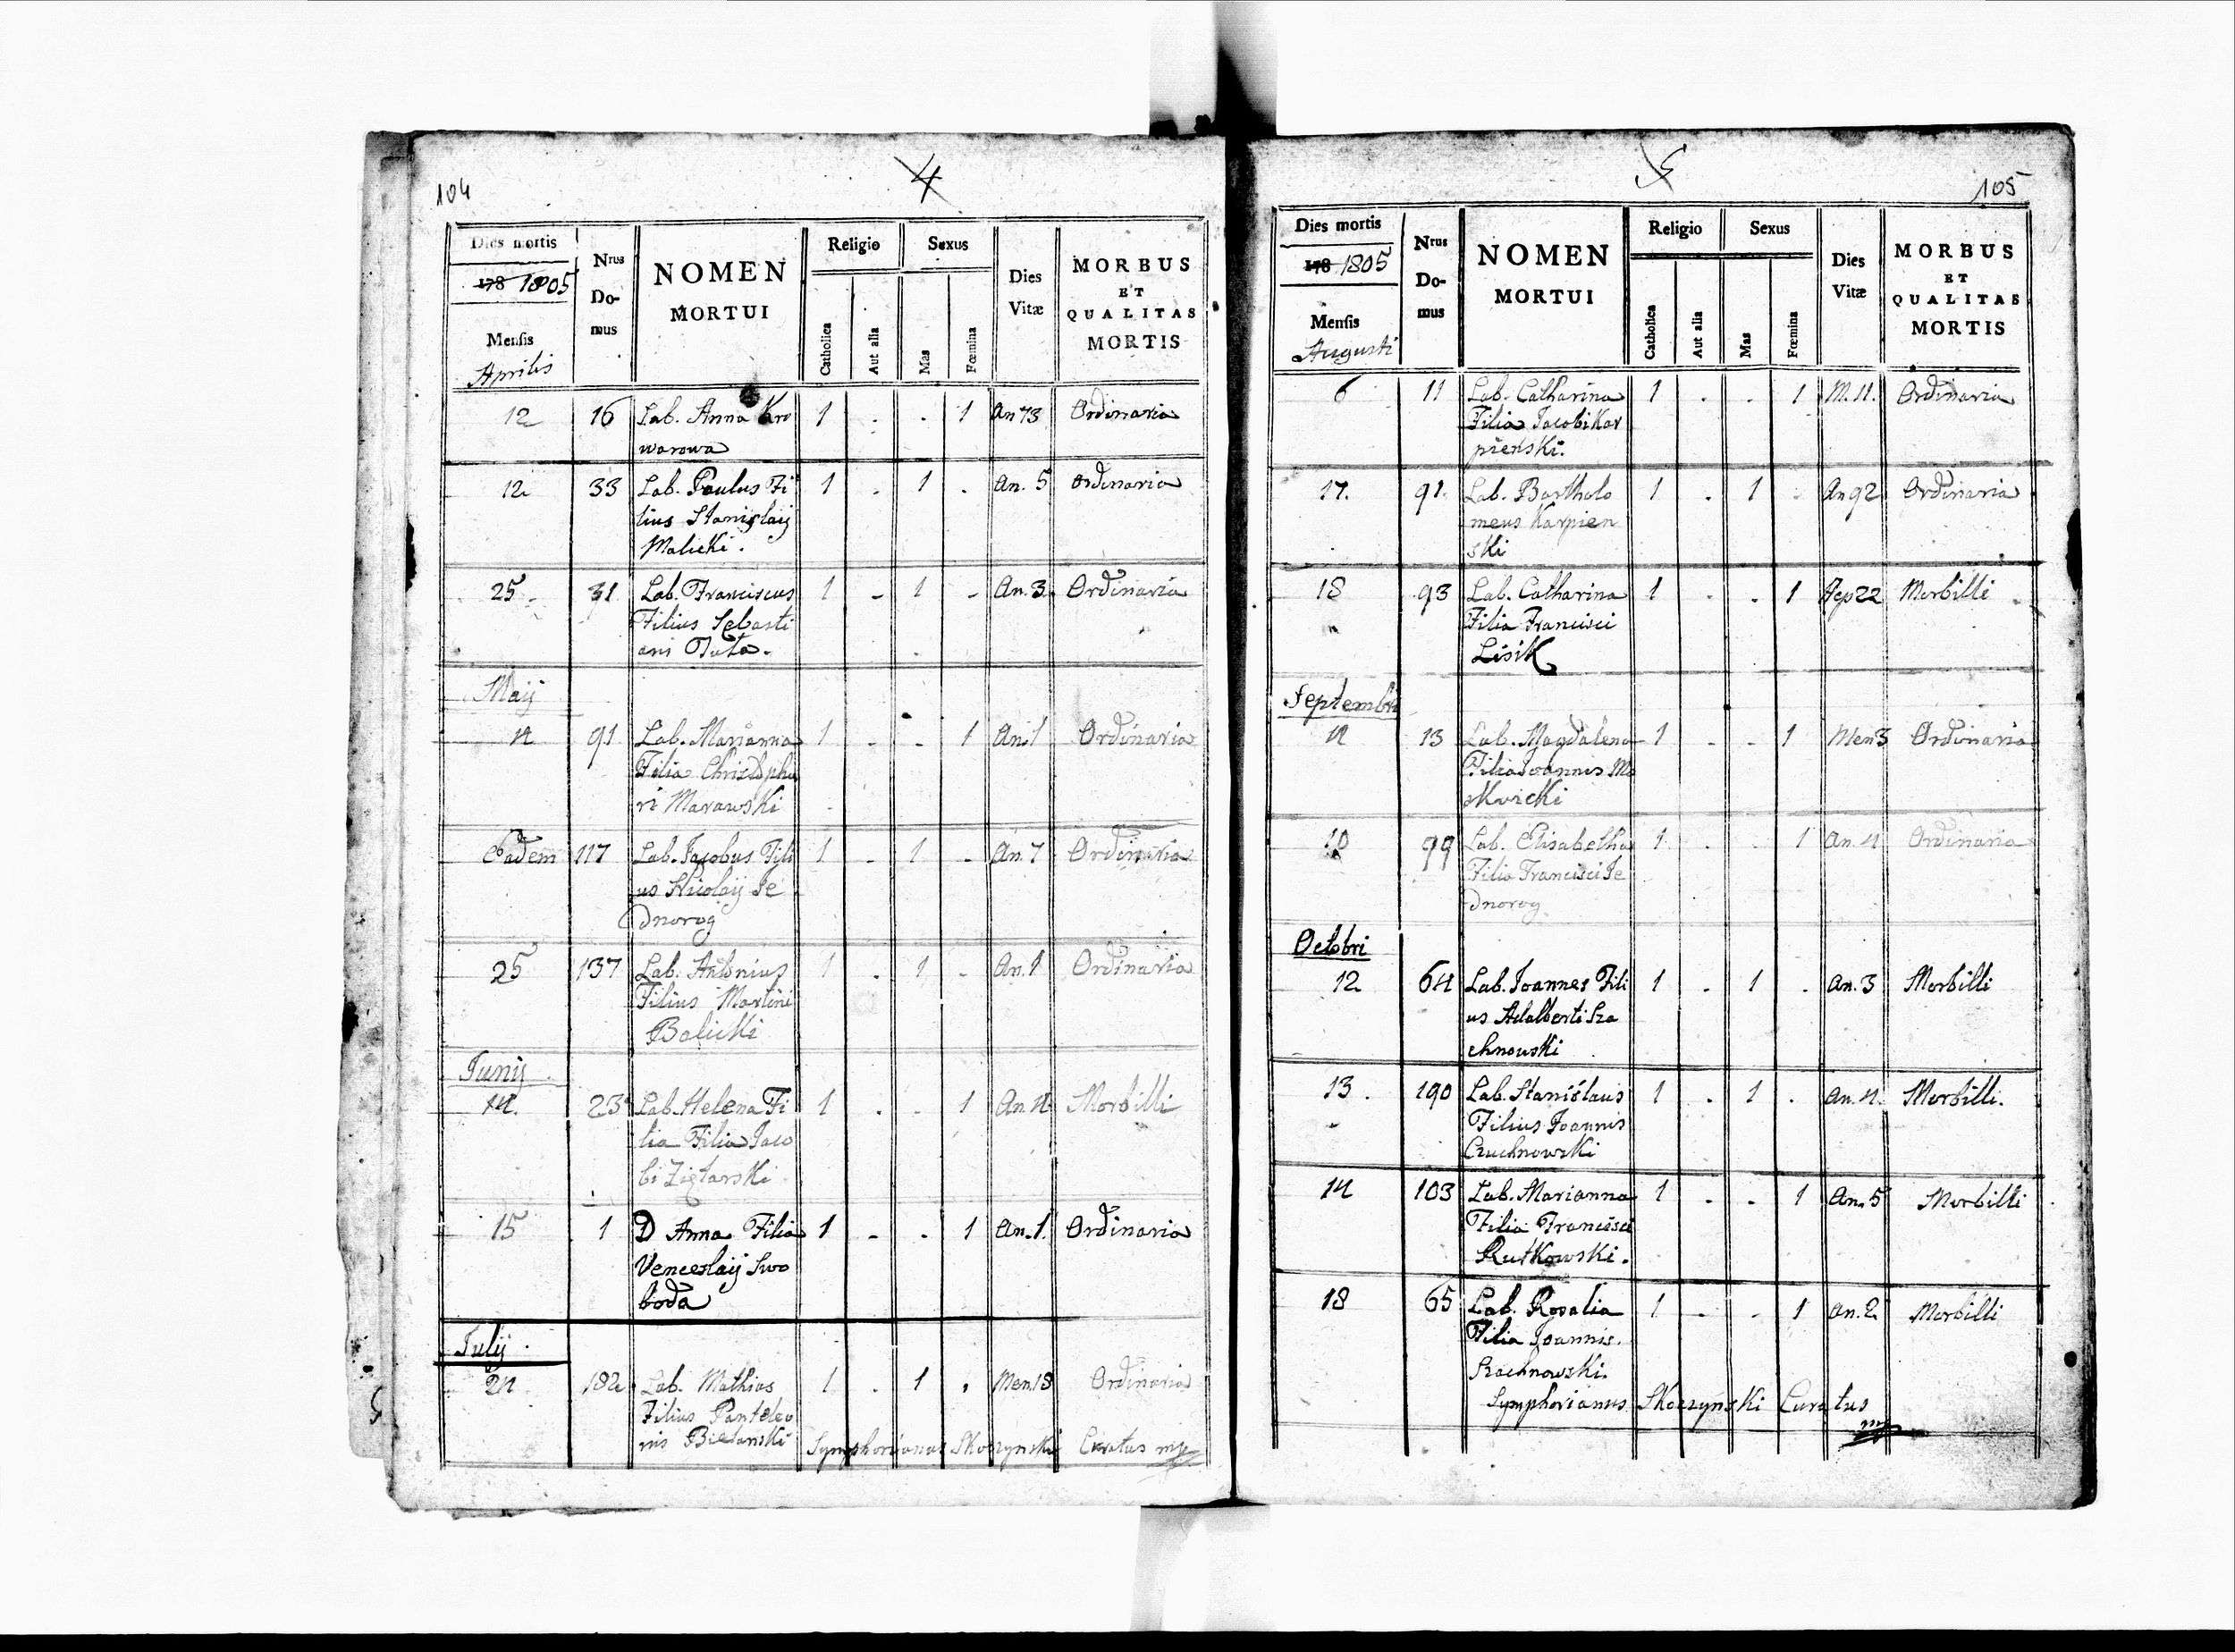 104
4
Dies mortis
178 1805
Mensis
Aprilis
Nrus
Do-
mus
NOMEN
MORTUI
Religio
Catholica
Aut alia
Sexus
Mas
Fœmina
Dies
Vitæ
MORBUS
ET
QUALITAS
MORTIS
12 16 Lab. Anna Kro 1 . . 1 An 73 Ordinaria
warowa
12 33 Lab. Paulus Fi 1 . 1 . An. 5 Ordinaria
lius Stanislaij
Malicki.
25 31 Lab. Franciscus 1 - 1 - An. 3. Ordinaria
Filius Sebasti
ani Tuta.
Maij
4 91 Lab. Marianna 1 - - 1 An. 1 Ordinaria
Filia Christopho
ri Marawski
Eadem 117 Lab. Jacobus Fili 1 - 1 - An. 7 Ordinaria
us Nicolaij Je
dnorog
25 137 Lab. Antonius 1 . 1 - An. 1 Ordinaria
Filius Martini
Balicki
Junij
14. 23 Lab. Helena Fi 1 . . 1 An 4. Morbilli
lia Filia Jaco
bi Ziętarski
15 1 D Anna Filia 1 - . 1 An. 1. Ordinaria
Venceslaij Swo
boda
Julij
24 182 Lab. Mathias 1 . 1 . Men 18 Ordinaria
Filius Panteleo
nis Bielanski
Symphorianus Skoczynski Curatus mp
5
105
Dies mortis
178 1805
Mensis
Augusti
Nrus
Do-
mus
NOMEN
MORTUI
Religio
Catholica
Aut alia
Sexus
Mas
Fœmina
Dies
Vitæ
MORBUS
ET
QUALITAS
MORTIS
6 11 Lab. Catharina 1 . . 1 M. 11. Ordinaria
Filia Jacobi Kar
pienski.
17. 91. Lab. Bartholo 1 . 1 . An 92 Ordinaria
meus Karpien
ski
18 93 Lab. Catharina 1 . . 1 22 Morbilli
Filia Francisci
Lisik
Septembri
4 13 Lab. Magdalena 1 . . 1 Men 3 Ordinaria
Filia Joannis Mo
skwicki
10 99 Lab. Elisabetha 1 . . 1 An. 4 Ordinaria
Filia Francisci Je
dnorog
Octobri
12 64 Lab. Joannes Fili 1 . 1 . An. 3 Morbilli
us Adalberti Sza
chnowski
13. 190 Lab. Stanislaus 1 . 1 . An. 4. Morbilli.
Filius Joannis
Czuchnowski
14 103 Lab. Marianna 1 . . 1 An. 5 Morbilli
Filia Francisci
Rutkowski.
18 65 Lab. Rosalia 1 . . 1 An. 2. Morbilli
Filia Joannis.
Szachnowski.
Symphorianus Skoczynski Curatus
mp